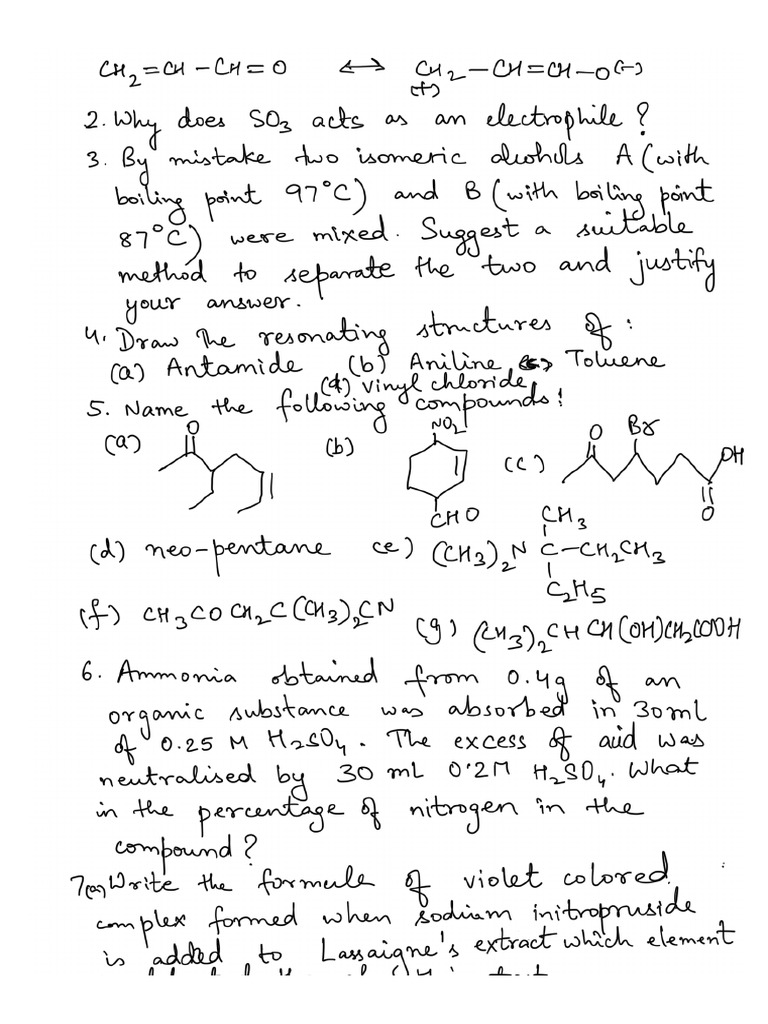 CH₂=CH-CH=O ↔ CH₂-CH=CH-O(-)
(+)
2. Why does SO₃ acts as an electrophile?
3. By mistake two isomeric alcohols A (with
boiling point 97°C) and B (with boiling point
87°C) were mixed. Suggest a suitable
method to separate the two and justify
your answer.
4. Draw the resonating structures of:
(a) Antamide (b) Aniline (c) Toluene
(d) vinyl chloride
5. Name the following compounds:
(a) O (b) NO₂ CHO (c) O Br OH O
(d) neo-pentane (e) (CH₃)₂N C-CH₂CH₃
CH₃
C₂H₅
(f) CH₃COCH₂C(CH₃)₂CN
(g) (CH₃)₂CHCH(OH)CH₂COOH
6. Ammonia obtained from 0.4g of an
organic substance was absorbed in 30ml
of 0.25 M H₂SO₄. The excess of acid was
neutralised by 30 mL 0.2M H₂SO₄. What
in the percentage of nitrogen in the
compound?
7(a) Write the formule of violet colored
complex formed when sodium initropruside
is added to Lassaigne's extract which element